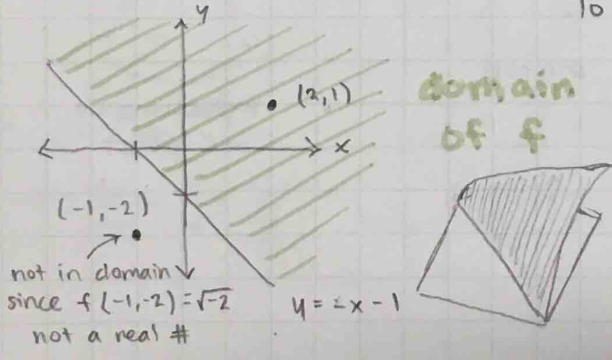 10
y
(2,1)
x
domain
of f
(-1,-2)
not in domain
since f(-1,-2)=√-2
not a real #
y = -x - 1